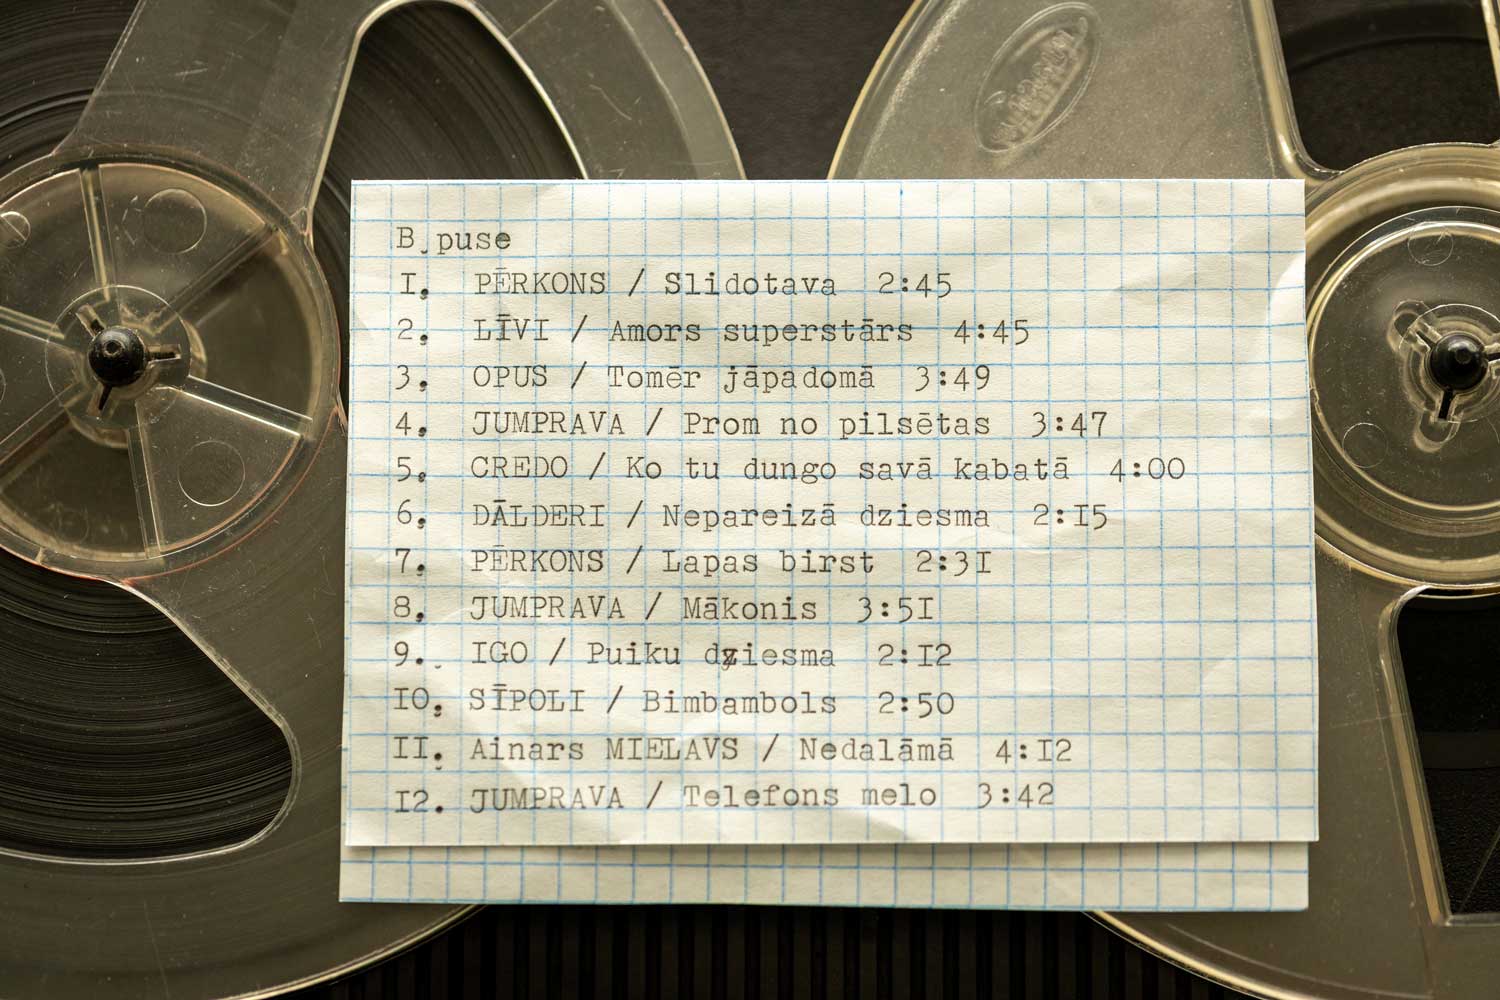 B. puse
I. PĒRKONS / Slidotava 2:45
2. LĪVI / Amors superstārs 4:45
3. OPUS / Tomēr jāpadomā 3:49
4. JUMPRAVA / Prom no pilsētas 3:47
5. CREDO / Ko tu dungo savā kabatā 4:00
6. DĀLDERI / Nepareizā dziesma 2:I5
7. PĒRKONS / Lapas birst 2:3I
8. JUMPRAVA / Mākonis 3:5I
9. IGO / Puiku dziesma 2:I2
IO. SĪPOLI / Bimbambols 2:50
II. Ainars MIELAVS / Nedalāmā 4:I2
I2. JUMPRAVA / Telefons melo 3:42